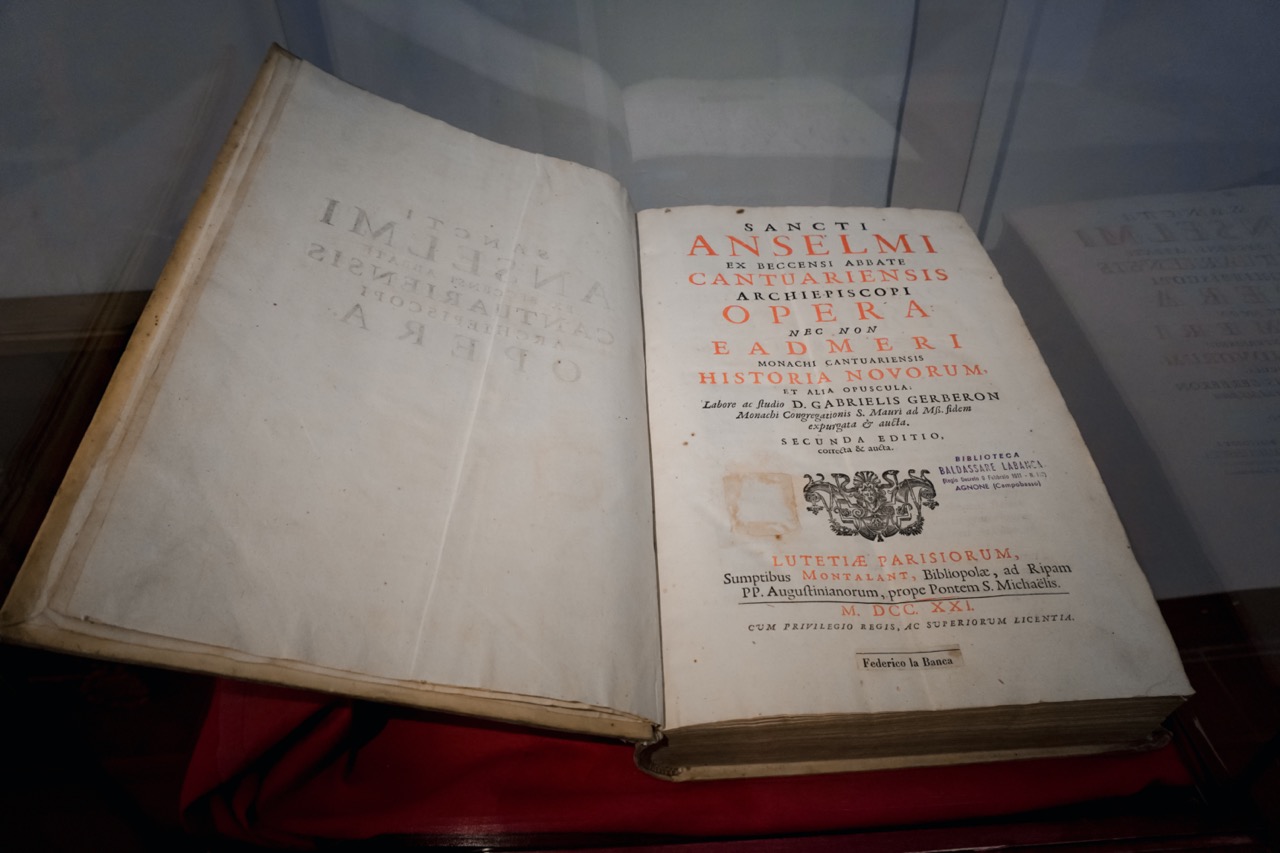 SANCTI
ANSELMI
EX BECCENSI ABBATE
CANTUARIENSIS
ARCHIEPISCOPI
OPERA
NEC NON
EADMERI
MONACHI CANTUARIENSIS
HISTORIA NOVORUM,
ET ALIA OPUSCULA,
Labore ac ſtudio D. GABRIELIS GERBERON
Monachi Congregationis S. Mauri ad Mſſ. fidem
expurgata & aucta.
SECUNDA EDITIO,
correcta & aucta.
BIBLIOTECA
BALDASSARE LABANCA
(Regio Decreto 9 Febbraio 1911 - N.
AGNONE (Campobasso)
LUTETIÆ PARISIORUM,
Sumptibus MONTALANT, Bibliopolæ, ad Ripam
PP. Auguſtinianorum, prope Pontem S. Michaëlis.
M. DCC. XXI.
CUM PRIVILEGIO REGIS, AC SUPERIORUM LICENTIA.
Federico la Banca